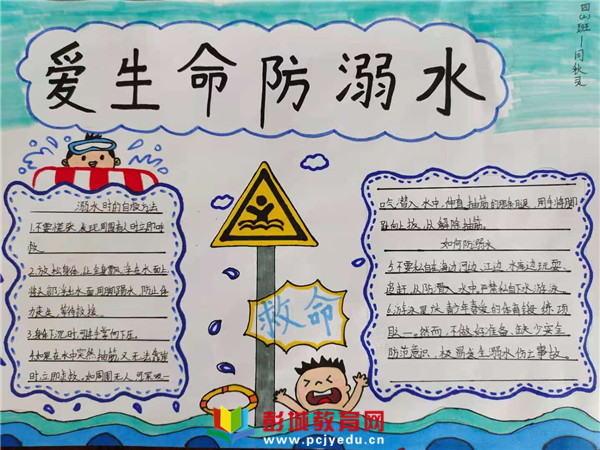 四(4)班
爱生命防溺水
溺水时的自救方法
1.不要慌张,发现周围有人时立即呼
救。
2.放松身体,让全身飘浮在水面上
将头部浮出水面,用脚踢水,防止体
力丧失,等待救援。
3.身体下沉时,可将手掌向下压。
4.如果在水中突然抽筋,又无法靠岸
时,立即求救。如周围无人,可深吸一
口气潜入水中,伸直抽筋的那条腿,用手将脚
趾向上扳,以解除抽筋。
如何防溺水
5.不要私自在海边河边、江边水库边玩耍、
追赶,以防滑入水中,严禁私自下水游泳。
6.游泳是广大青少年喜爱的体育锻炼项
目之一。然而,不做好准备、缺少安全
防范意识,极易发生溺水伤亡事故。
救命
彭城教育网
www.pcjyedu.cn